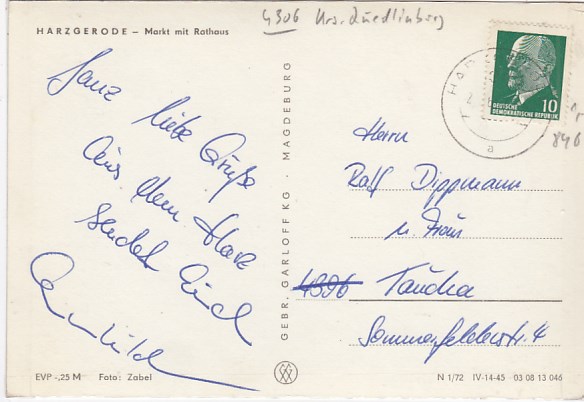 4306 Krs. Quedlinburg
HARZGERODE – Markt mit Rathaus
Ganz liebe Grüße
aus dem Harz
sendet Euch
GEBR. GARLOFF KG · MAGDEBURG
DEUTSCHE
DEMOKRATISCHE REPUBLIK
10
a
846
Herrn
Ralf Dippmann
u. Frau
Taucha
Sommerfelderstr. 4
EVP -,25 M Foto: Zabel
N 1/72 IV-14-45 03 08 13 046